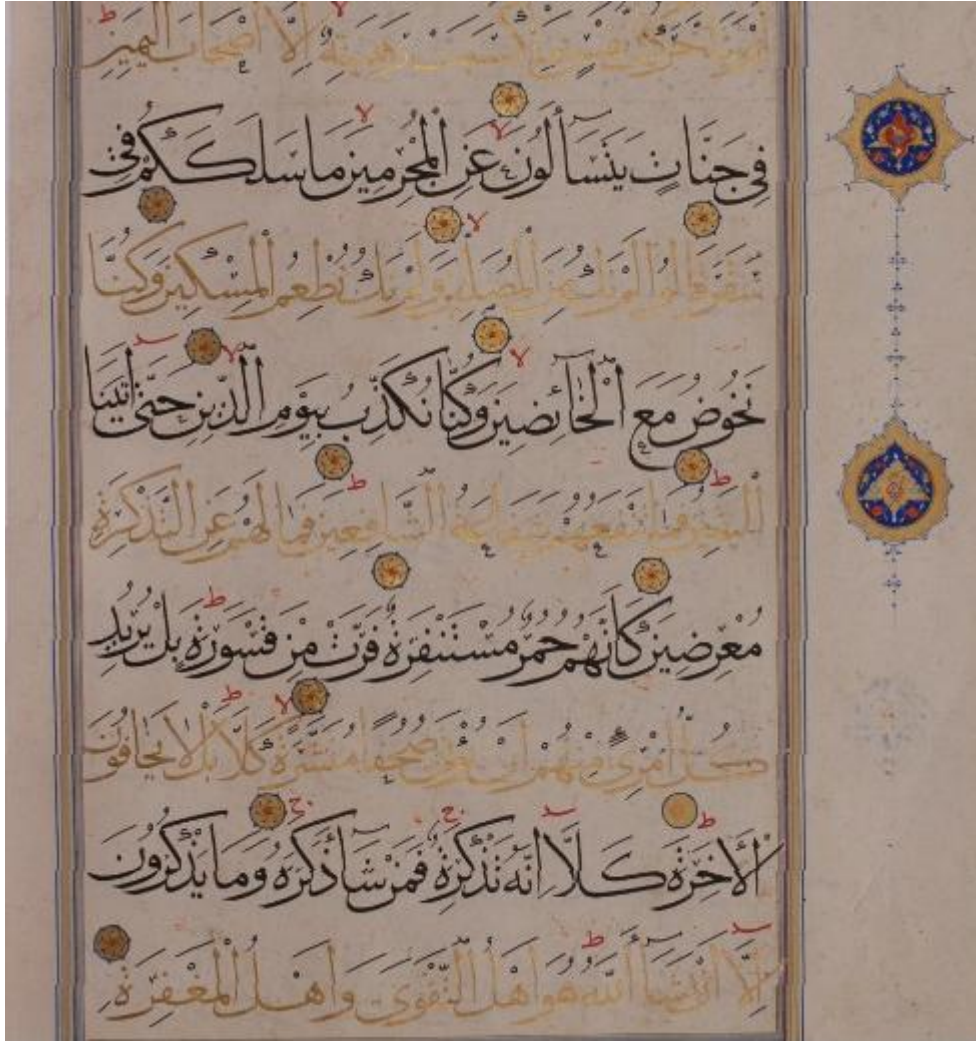 كَسَبَتْ رَهِينَةٌ اِلَّا اَصْحَابَ الْيَمِينِ
فِي جَنَّاتٍ يَتَسَآأَلُونَ عَنِ الْمُجْرِمِينَ مَا سَلَكَكُمْ فِي
سَقَرَ قَالُوا لَمْ نَكُ مِنَ الْمُصَلِّينَ وَلَمْ نَكُ نُطْعِمُ الْمِسْكِينَ وَكُنَّا
نَخُوضُ مَعَ الْخَآئِضِينَ وَكُنَّا نُكَذِّبُ بِيَوْمِ الدِّينِ حَتَّى اَتٰينَا
الْيَقِينُ فَمَا تَنْفَعُهُمْ شَفَاعَةُ الشَّافِعِينَ فَمَا لَهُمْ عَنِ التَّذْكِرَةِ
مُعْرِضِينَ كَاَنَّهُمْ حُمُرٌ مُسْتَنْفِرَةٌ فَرَّتْ مِنْ قَسْوَرَةٍ بَلْ يُرِيدُ
كُلُّ امْرِئٍ مِنْهُمْ اَنْ يُؤْتٰى صُحُفًا مُنَشَّرَةً كَلَّا بَلْ لَا يَخَافُونَ
الْاٰخِرَةَ كَلَّا اِنَّهُ تَذْكِرَةٌ فَمَنْ شَآ ذَكَرَهُ وَمَا يَذْكُرُونَ
اِلَّا اَنْ يَشَآأَ اللّٰهُ هُوَ اَهْلُ التَّقْوٰى وَاَهْلُ الْمَغْفِرَةِ